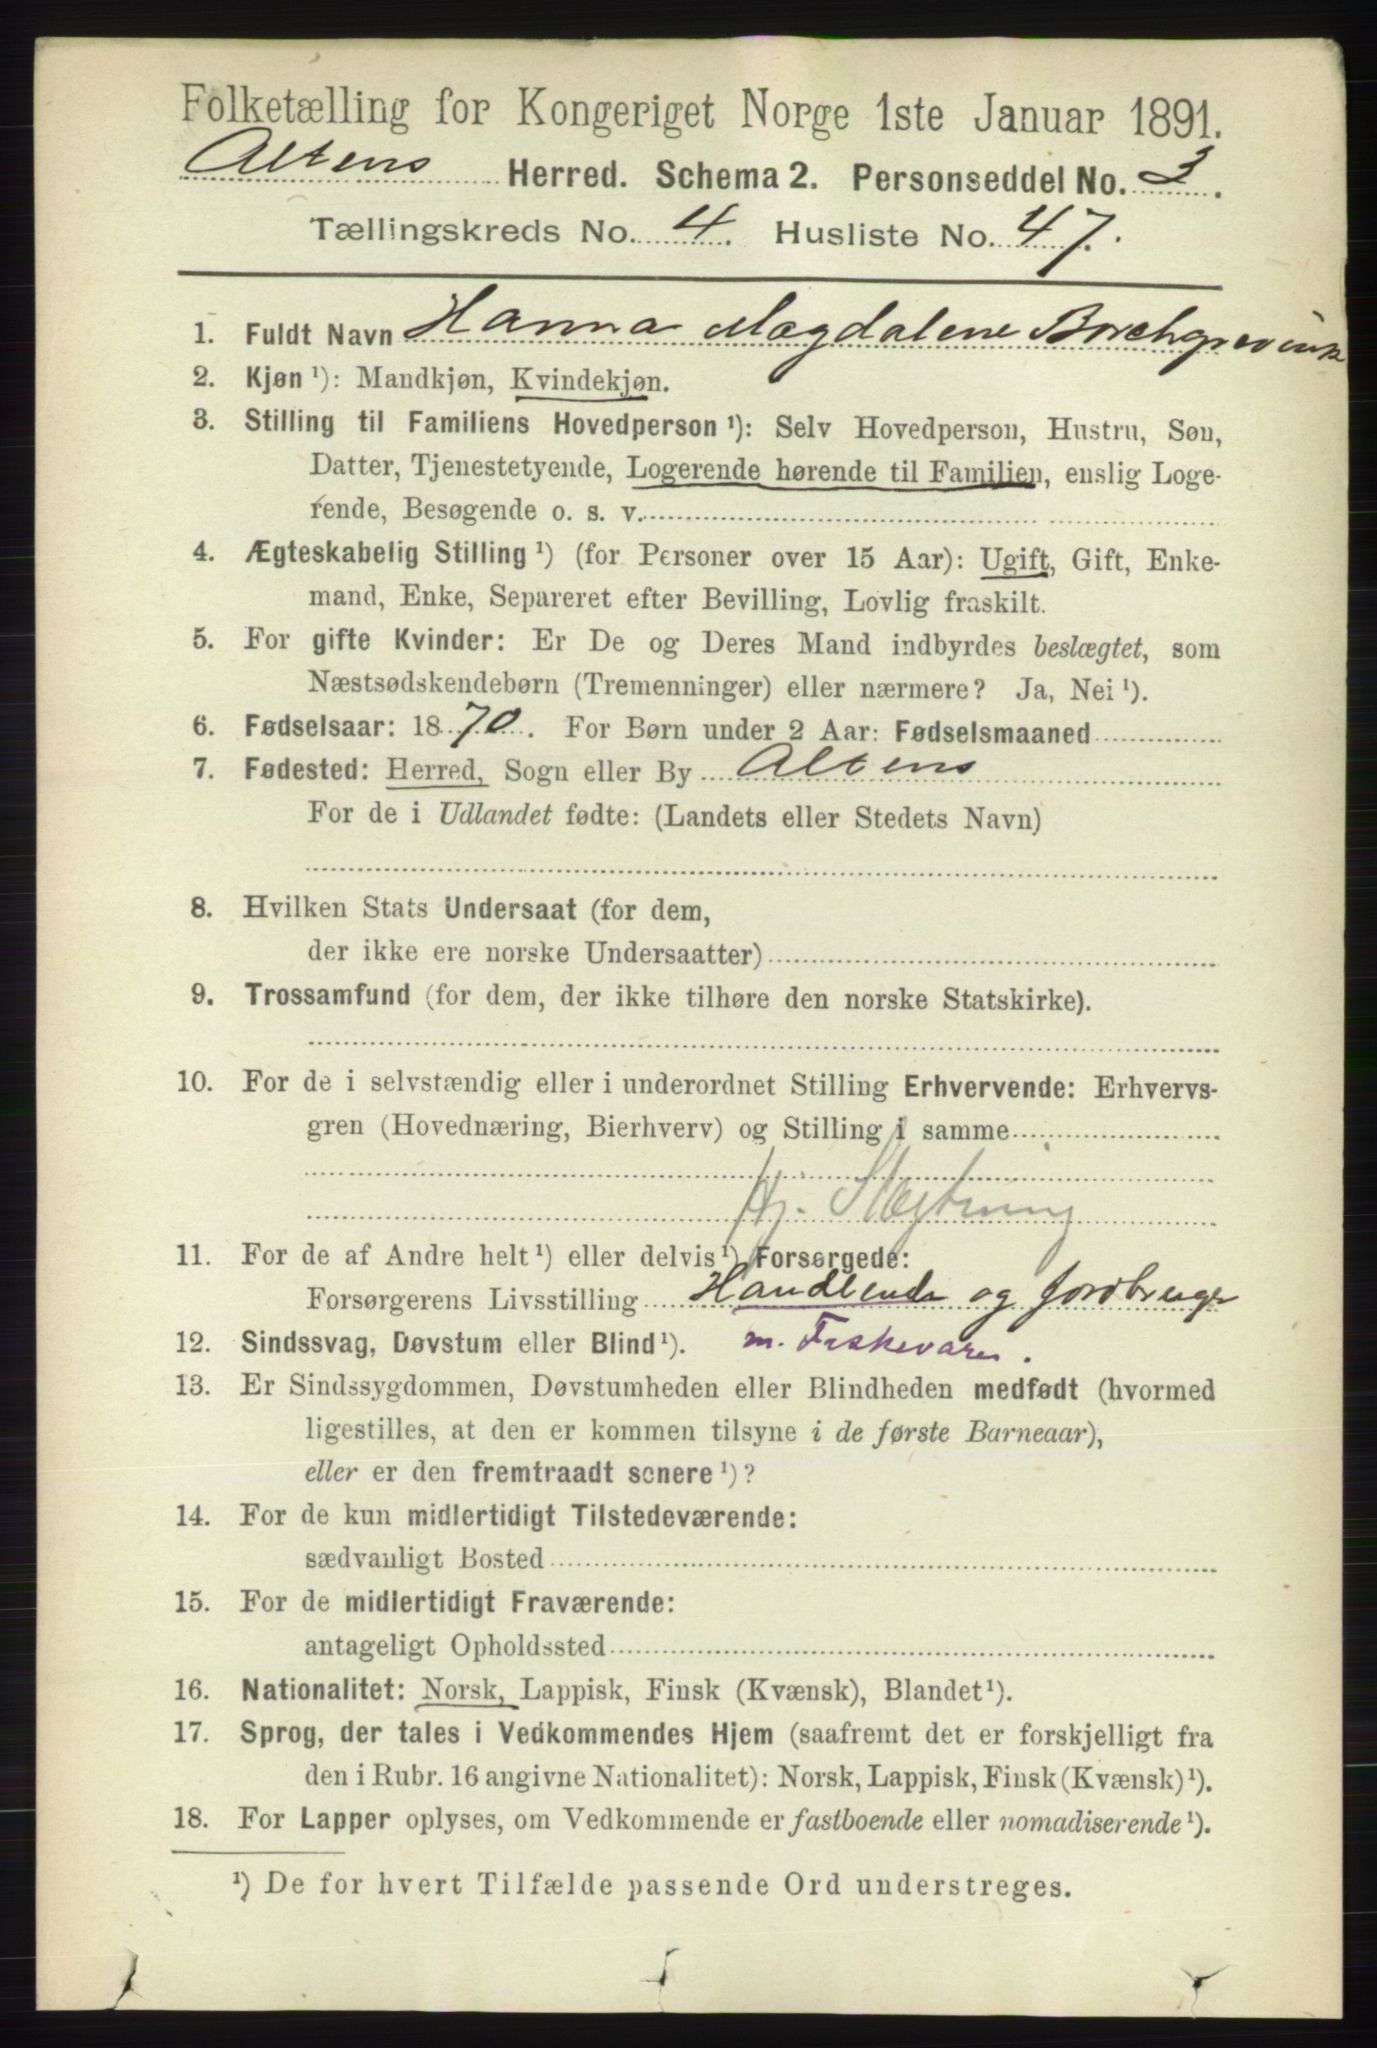 Folketælling for Kongeriget Norge 1ste Januar 1891.
Altens Herred. Schema 2. Personseddel No. 3.
Tællingskreds No. 4. Husliste No. 47.
1. Fuldt Navn Hanna Magdalene Borchgrevink
2. Kjøn ¹): Mandkjøn, Kvindekjøn.
3. Stilling til Familiens Hovedperson ¹): Selv Hovedperson, Hustru, Søn,
Datter, Tjenestetyende, Logerende hørende til Familien, enslig Loge-
rende, Besøgende o. s. v.
4. Ægteskabelig Stilling ¹) (for Personer over 15 Aar): Ugift, Gift, Enke-
mand, Enke, Separeret efter Bevilling, Lovlig fraskilt.
5. For gifte Kvinder: Er De og Deres Mand indbyrdes beslægtet, som
Næstsødskendebørn (Tremenninger) eller nærmere? Ja, Nei ¹).
6. Fødselsaar: 1870. For Børn under 2 Aar: Fødselsmaaned
7. Fødested: Herred, Sogn eller By Altens
For de i Udlandet fødte: (Landets eller Stedets Navn)
8. Hvilken Stats Undersaat (for dem,
der ikke ere norske Undersaatter)
9. Trossamfund (for dem, der ikke tilhøre den norske Statskirke).
10. For de i selvstændig eller i underordnet Stilling Erhvervende: Erhvervs-
gren (Hovednæring, Bierhverv) og Stilling i samme
11. For de af Andre helt ¹) eller delvis ¹) Forsørgede:
Forsørgerens Livsstilling Handlende og Jordbruger
12. Sindssvag, Døvstum eller Blind ¹). m. Fiskevarer.
13. Er Sindssygdommen, Døvstumheden eller Blindheden medfødt (hvormed
ligestilles, at den er kommen tilsyne i de første Barneaar),
eller er den fremtraadt senere ¹)?
14. For de kun midlertidigt Tilstedeværende:
sædvanligt Bosted
15. For de midlertidigt Fraværende:
antageligt Opholdssted
16. Nationalitet: Norsk, Lappisk, Finsk (Kvænsk), Blandet ¹).
17. Sprog, der tales i Vedkommendes Hjem (saafremt det er forskjelligt fra
den i Rubr. 16 angivne Nationalitet): Norsk, Lappisk, Finsk (Kvænsk) ¹).
18. For Lapper oplyses, om Vedkommende er fastboende eller nomadiserende ¹).
¹) De for hvert Tilfælde passende Ord understreges.